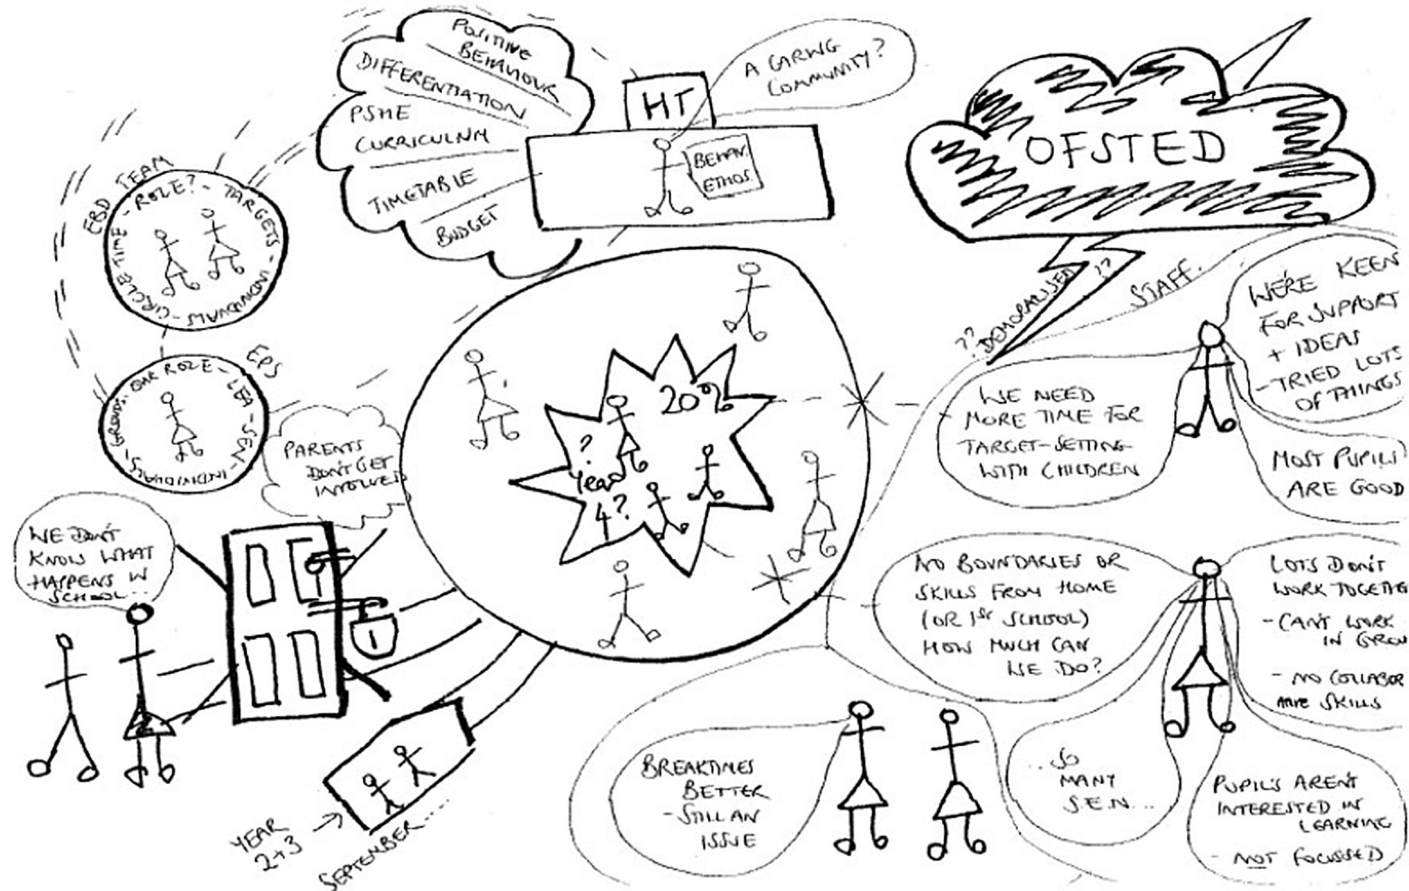 POSITIVE
BEHAVIOUR
DIFFERENTIATION
PSHE
CURRICULUM
TIMETABLE
BUDGET
HT
A CARING
COMMUNITY?
BEHAV.
ETHOS.
OFSTED
EBD TEAM
ROLE? - TARGETS - INDIVIDUALS - CIRCLE TIME -
EPS
OUR ROLE - LEA - SEN - INDIVIDUALS - GROUPS.
PARENTS
DON'T GET
INVOLVED
WE DON'T
KNOW WHAT
HAPPENS IN
SCHOOL...
1
20%
?
Year
4?
YEAR
2+3
SEPTEMBER...
?? DEMORALISED ??
STAFF.
WE'RE KEEN
FOR SUPPORT
+ IDEAS
- TRIED LOTS
OF THINGS
WE NEED
MORE TIME FOR
TARGET-SETTING
WITH CHILDREN
MOST PUPILS
ARE GOOD
NO BOUNDARIES OR
SKILLS FROM HOME
(OR 1st SCHOOL)
HOW MUCH CAN
WE DO?
LOTS DON'T
WORK TOGETHE
- CAN'T WORK
IN GROU
- NO COLLABOR
ATIVE SKILLS
...SO
MANY
S.E.N...
PUPILS AREN'T
INTERESTED IN
LEARNING
- NOT FOCUSSED
BREAKTIMES
BETTER
- STILL AN
ISSUE